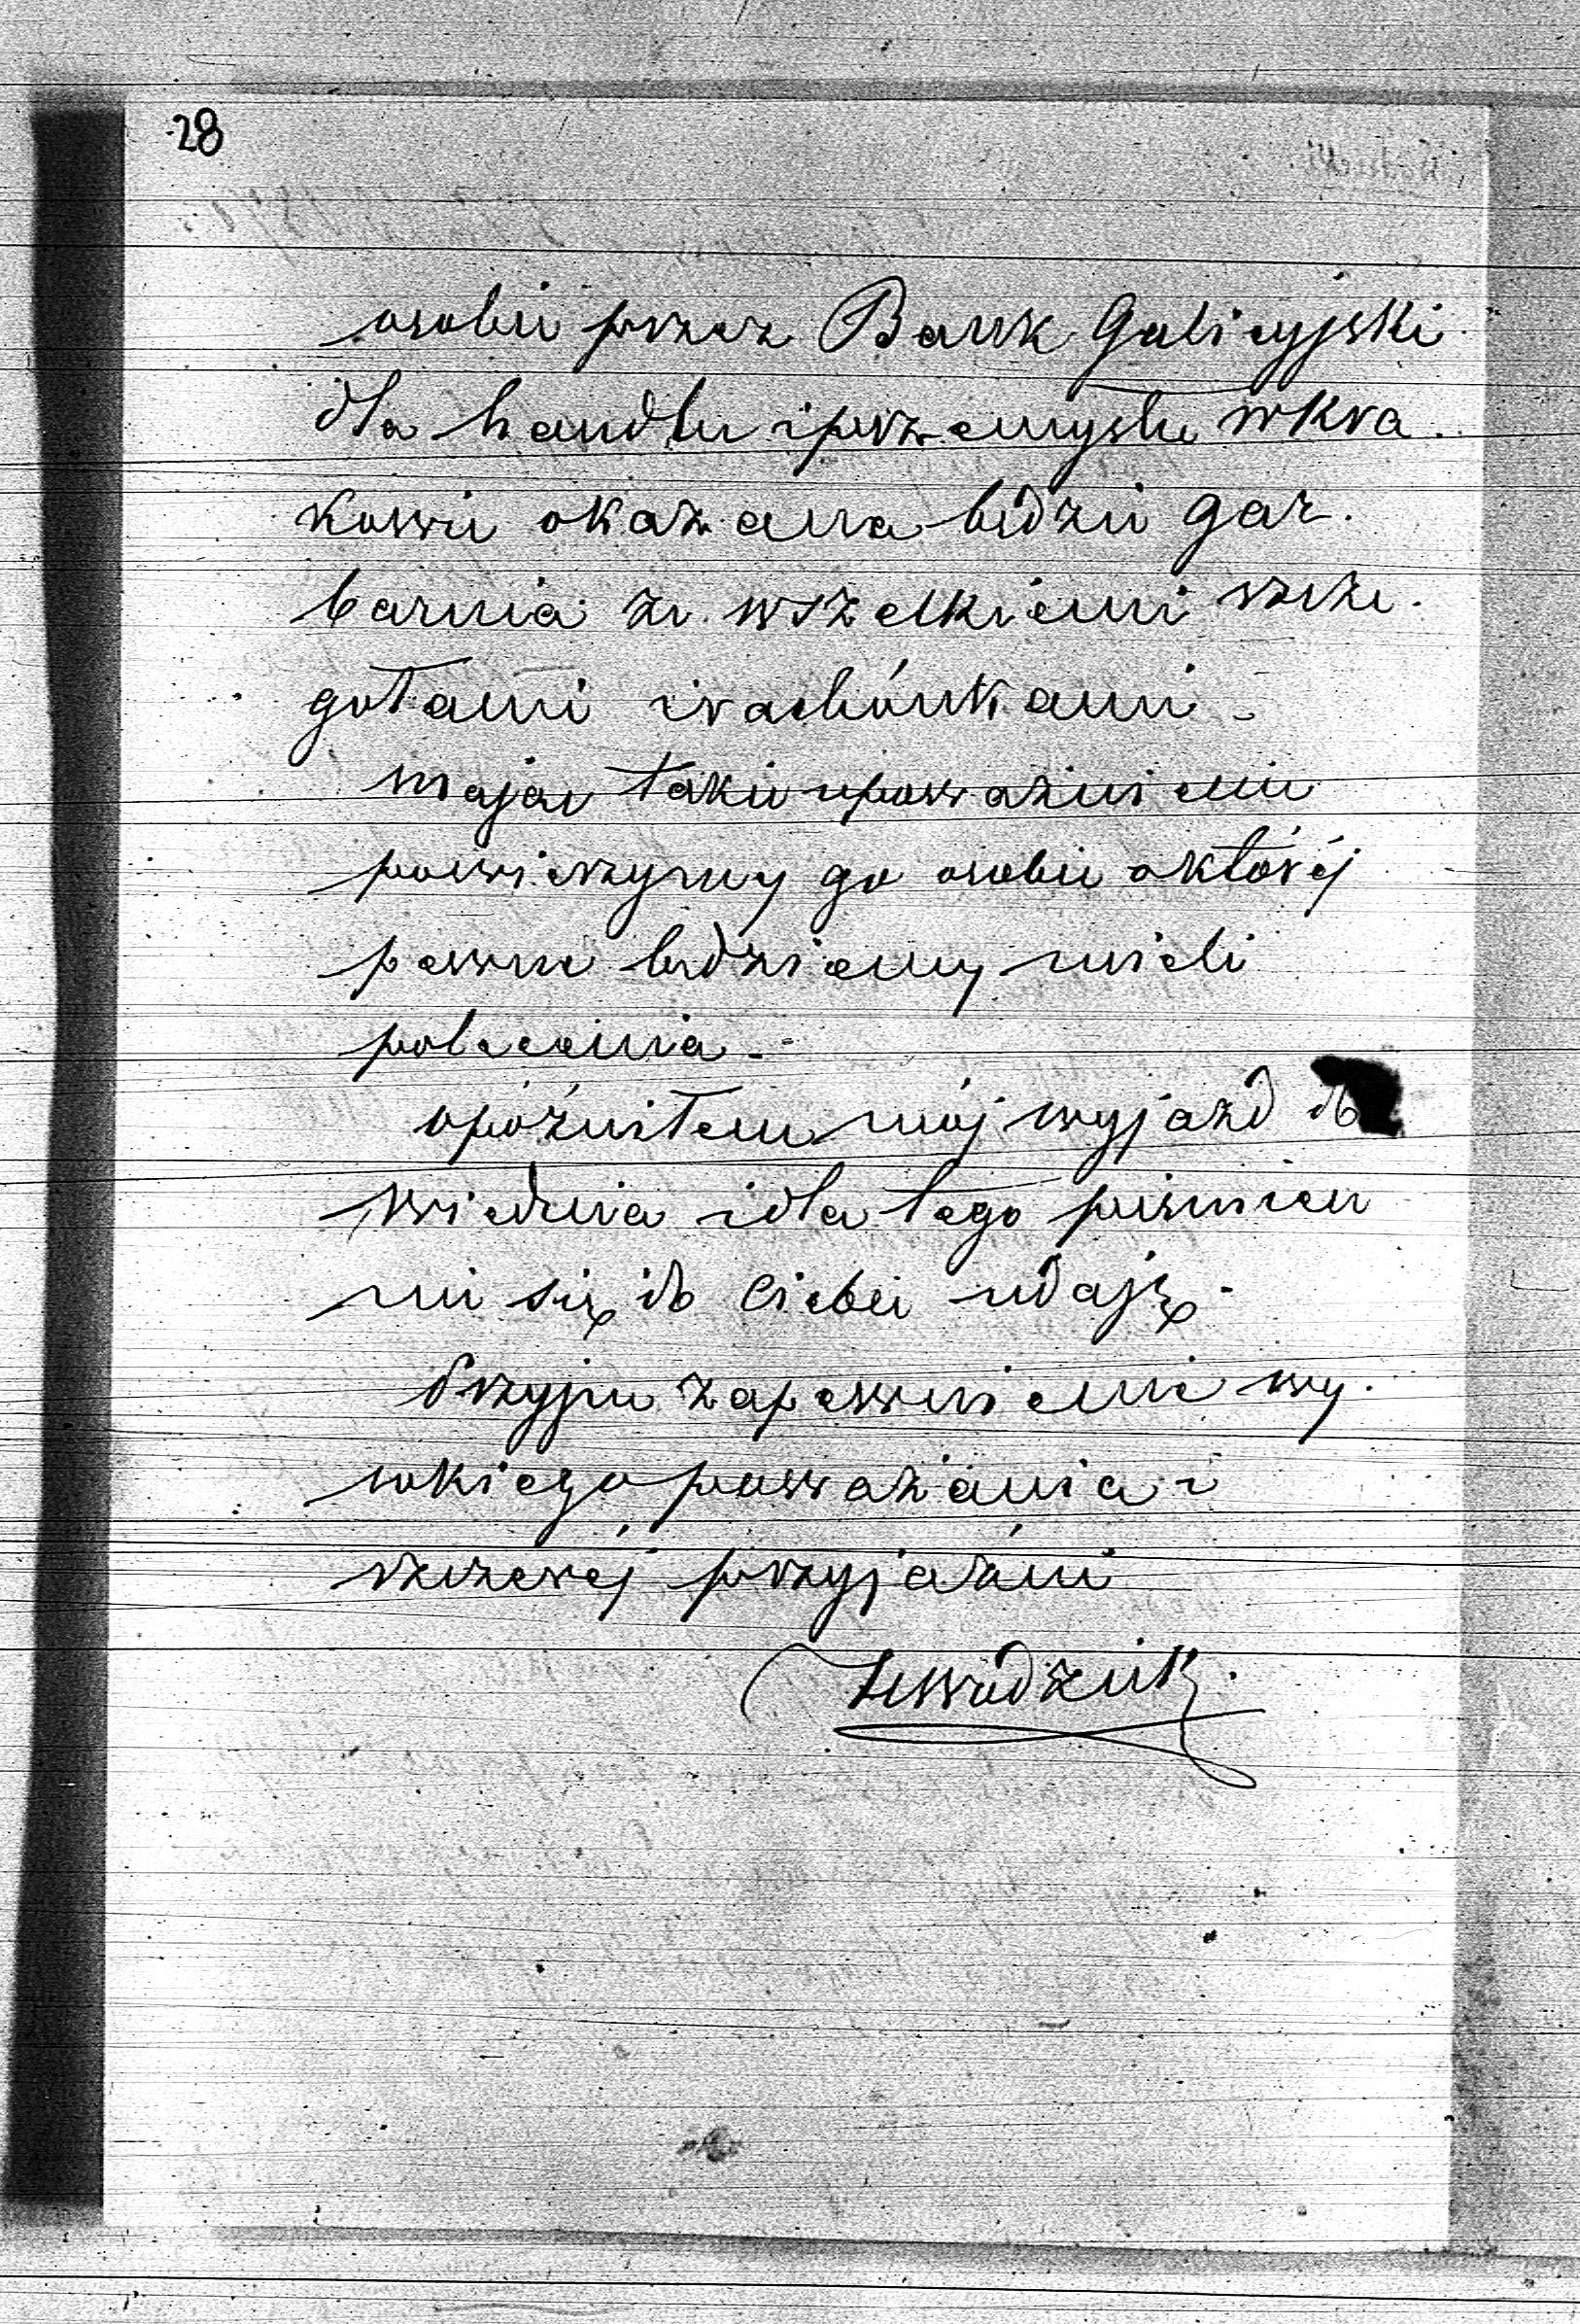 28
osobie przez Bank Galicyjski
dla handlu i przemysłu w Kra
kowie okazana będzie gar.
barnia ze wszelkiemi szcze.
gołami i rachunkami -
mając takie upoważnienie
powierzymy go osobie o której
pewne będziemy mieli
polecenia -
opóźniłem mój wyjazd do
Wiednia i dla tego piśmien
nie się do Ciebie udaję.
Przyjm zapewnienie wy.
sokiego poważania i
szczerej przyjaźni